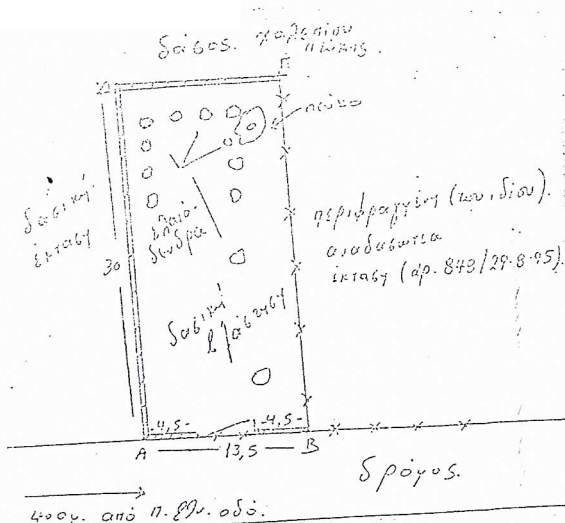 δάσος χαλεπίου
πεύκης.
Δ
Γ
πεύκο
δασική
έκταση
30
ελαιό-
δενδρα
περιφραγμένη (του ιδίου).
αναδασωτέα
έκταση (αρ. 848/29-8-95)
δασική
βλάστηση
-4,5-
-4,5-
A 13,5 B
δρόμος.
400μ. από Π. Εθν. οδό.